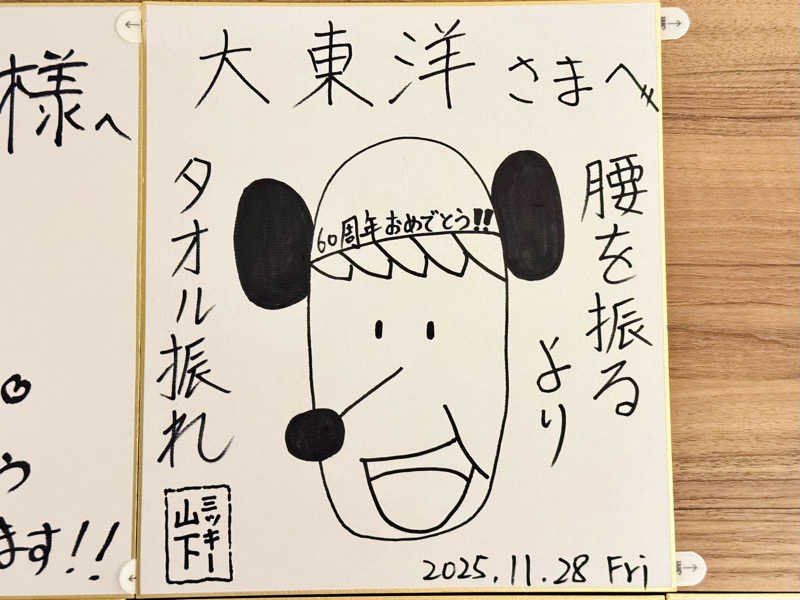 大東洋さまへ
腰を振る
より
60周年おめでとう!!
タオル振れ
ミッキー
山下
2025.11.28 Fri
様へ
ます!!